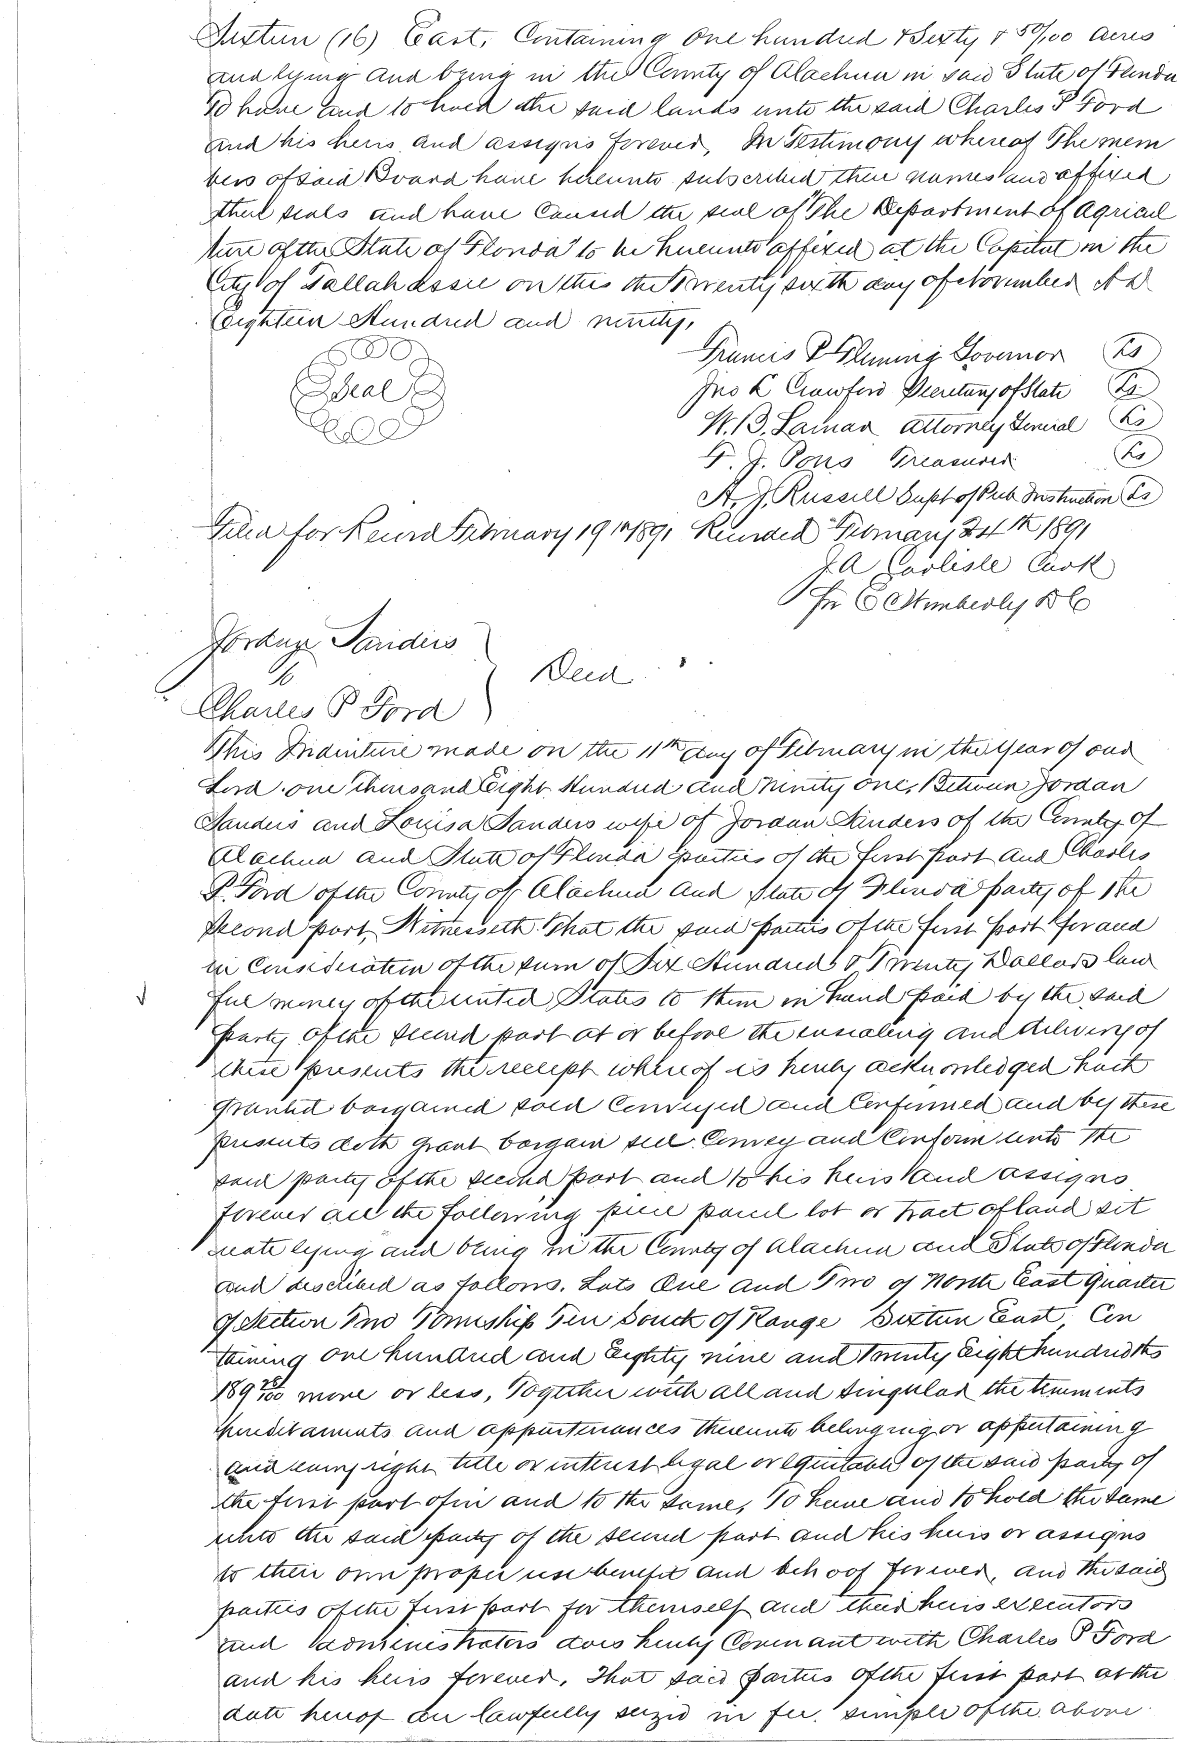 Sixteen (16) East, Containing One hundred & Sixty & 50/100 acres
and lying and being in the County of Alachua in said State of Florida
To have and to hold the said lands unto the said Charles P Ford
and his heirs and assigns forever, In Testimony whereof The mem
bers of said Board have hereunto subscribed their names and affixed
their seals and have caused the seal of "The Department of Agricul
ture of the State of Florida" to be hereunto affixed at the Capitol in the
City of Tallahassee on this the Twenty sixth day of November A D
Eighteen Hundred and ninety,
Francis P Fleming Governor Ls
Seal
Jno L Crawford Secretary of State Ls
W. B. Lamar Attorney General Ls
F. J. Pons Treasurer Ls
A. J. Russell Supt of Pub Instruction Ls
Filed for Record February 19th 1891 Recorded February 24th 1891
J. A Carlisle Clerk
Per D C
Jordan Sanders
to
Deed
Charles P Ford
This Indenture made on the 11th day of February in the year of our
Lord one thousand Eight Hundred and ninety one, Between Jordan
Sanders and Louisa Sanders wife of Jordan Sanders of the County of
Alachua and State of Florida parties of the first part and Charles
P. Ford of the County of Alachua and State of Florida party of the
second part, Witnesseth That the said parties of the first part for and
in consideration of the sum of Six Hundred & Twenty Dollars law
ful money of the united States to them in hand paid by the said
party of the second part at or before the ensealing and delivery of
these presents the receipt whereof is hereby acknowledged hath
granted bargained sold Conveyed and Confirmed and by these
presents doth grant bargain sell Convey and Confirm unto the
said party of the second part and to his heirs and assigns
forever all the following piece parcel lot or tract of land sit
uate lying and being in the County of Alachua and State of Florida
and described as follows. Lots One and Two of North East Quarter
of Section Two Township Ten South of Range Sixteen East, Con
taining one hundred and Eighty nine and Twenty Eight hundredths
189 28/100 more or less, Together with all and singular the tenements
hereditaments and appurtenances thereunto belonging or appertaining
and every right title or interest legal or equitable of the said party of
the first part of in and to the same, To have and to hold the same
unto the said party of the second part and his heirs or assigns
to their own proper use benefit and behoof forever, and the said
parties of the first part for themself and their heirs executors
and administrators does hereby Covenant with Charles P Ford
and his heirs forever, That said parties of the first part at the
date hereof are lawfully seized in fee simple of the above